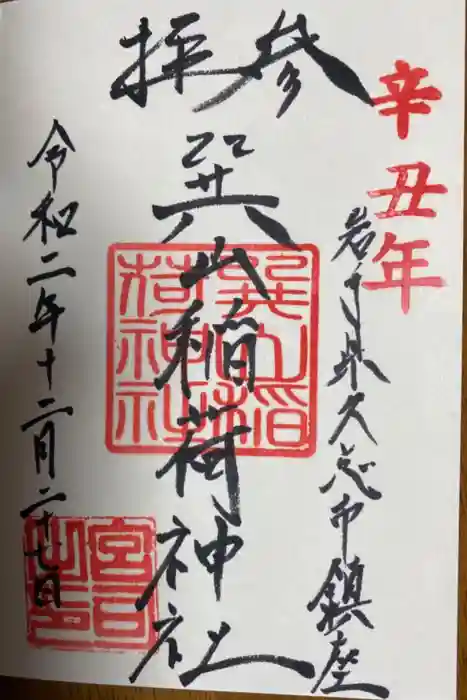 参拝
辛丑年
岩手県久慈市鎮座
巽山稲荷神社
巽山稲荷神社
令和二年十二月二十七日